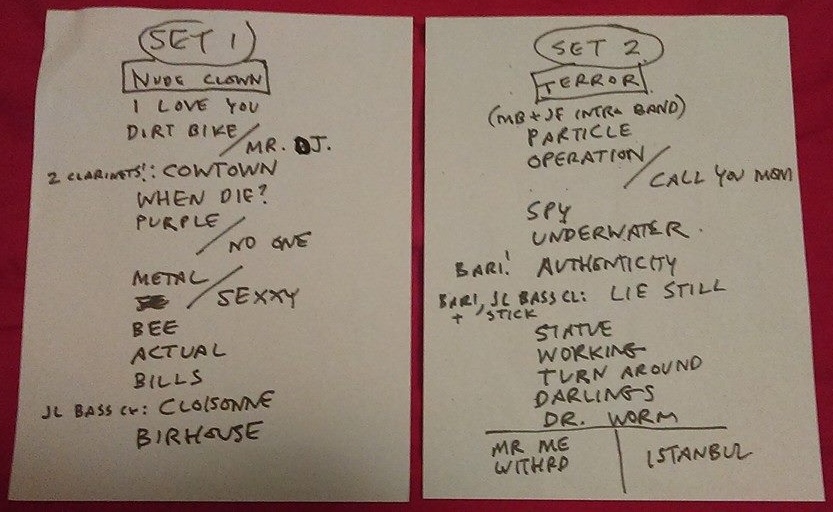 SET 1
NUDE CLOWN
I LOVE YOU
DIRT BIKE /
MR. DJ.
2 CLARINETS!: COWTOWN
WHEN DIE?
PURPLE /
NO ONE
METAL /
SEXXY
BEE
ACTUAL
BILLS
JL BASS CL: CLOISONNE
BIRHOUSE
SET 2
TERROR
(MB + JF INTRO BAND)
PARTICLE
OPERATION /
CALL YOU MOM
SPY
UNDERWATER.
BARI! AUTHENTICITY
BARI, JL BASS CL: LIE STILL
+ STICK
STATUE
WORKING
TURN AROUND
DARLINGS
DR. WORM
MR ME
WITHRD
ISTANBUL